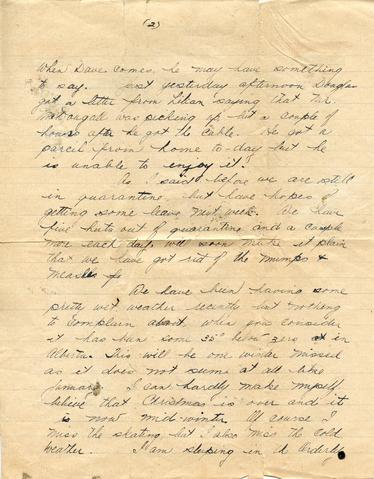 (2)
When Dave comes, he may have something
to say. Just yesterday afternoon Douglas
got a letter from Lilian saying that Mr.
McDougall was picking up but a couple of
hours after he got the cable. We got a
parcel from home to-day but he
is unable to enjoy it.
As I said before we are still
in quarantine, but have hopes of
getting some leave next week. We have
five huts out of quarantine and a couple
more each day will soon make it plain
that we have got rid of the mumps &
measles
We have been having some
pretty wet weather recently but nothing
to complain about, when you consider
it has been some 35° below zero in
Alberta. This will be one winter missed
as it does not seem at all like
January. I can hardly make myself
believe that Christmas is over and it
is now mid-winter. Of course I
miss the skating but I also miss the cold
weather. I am sleeping in the Orderly